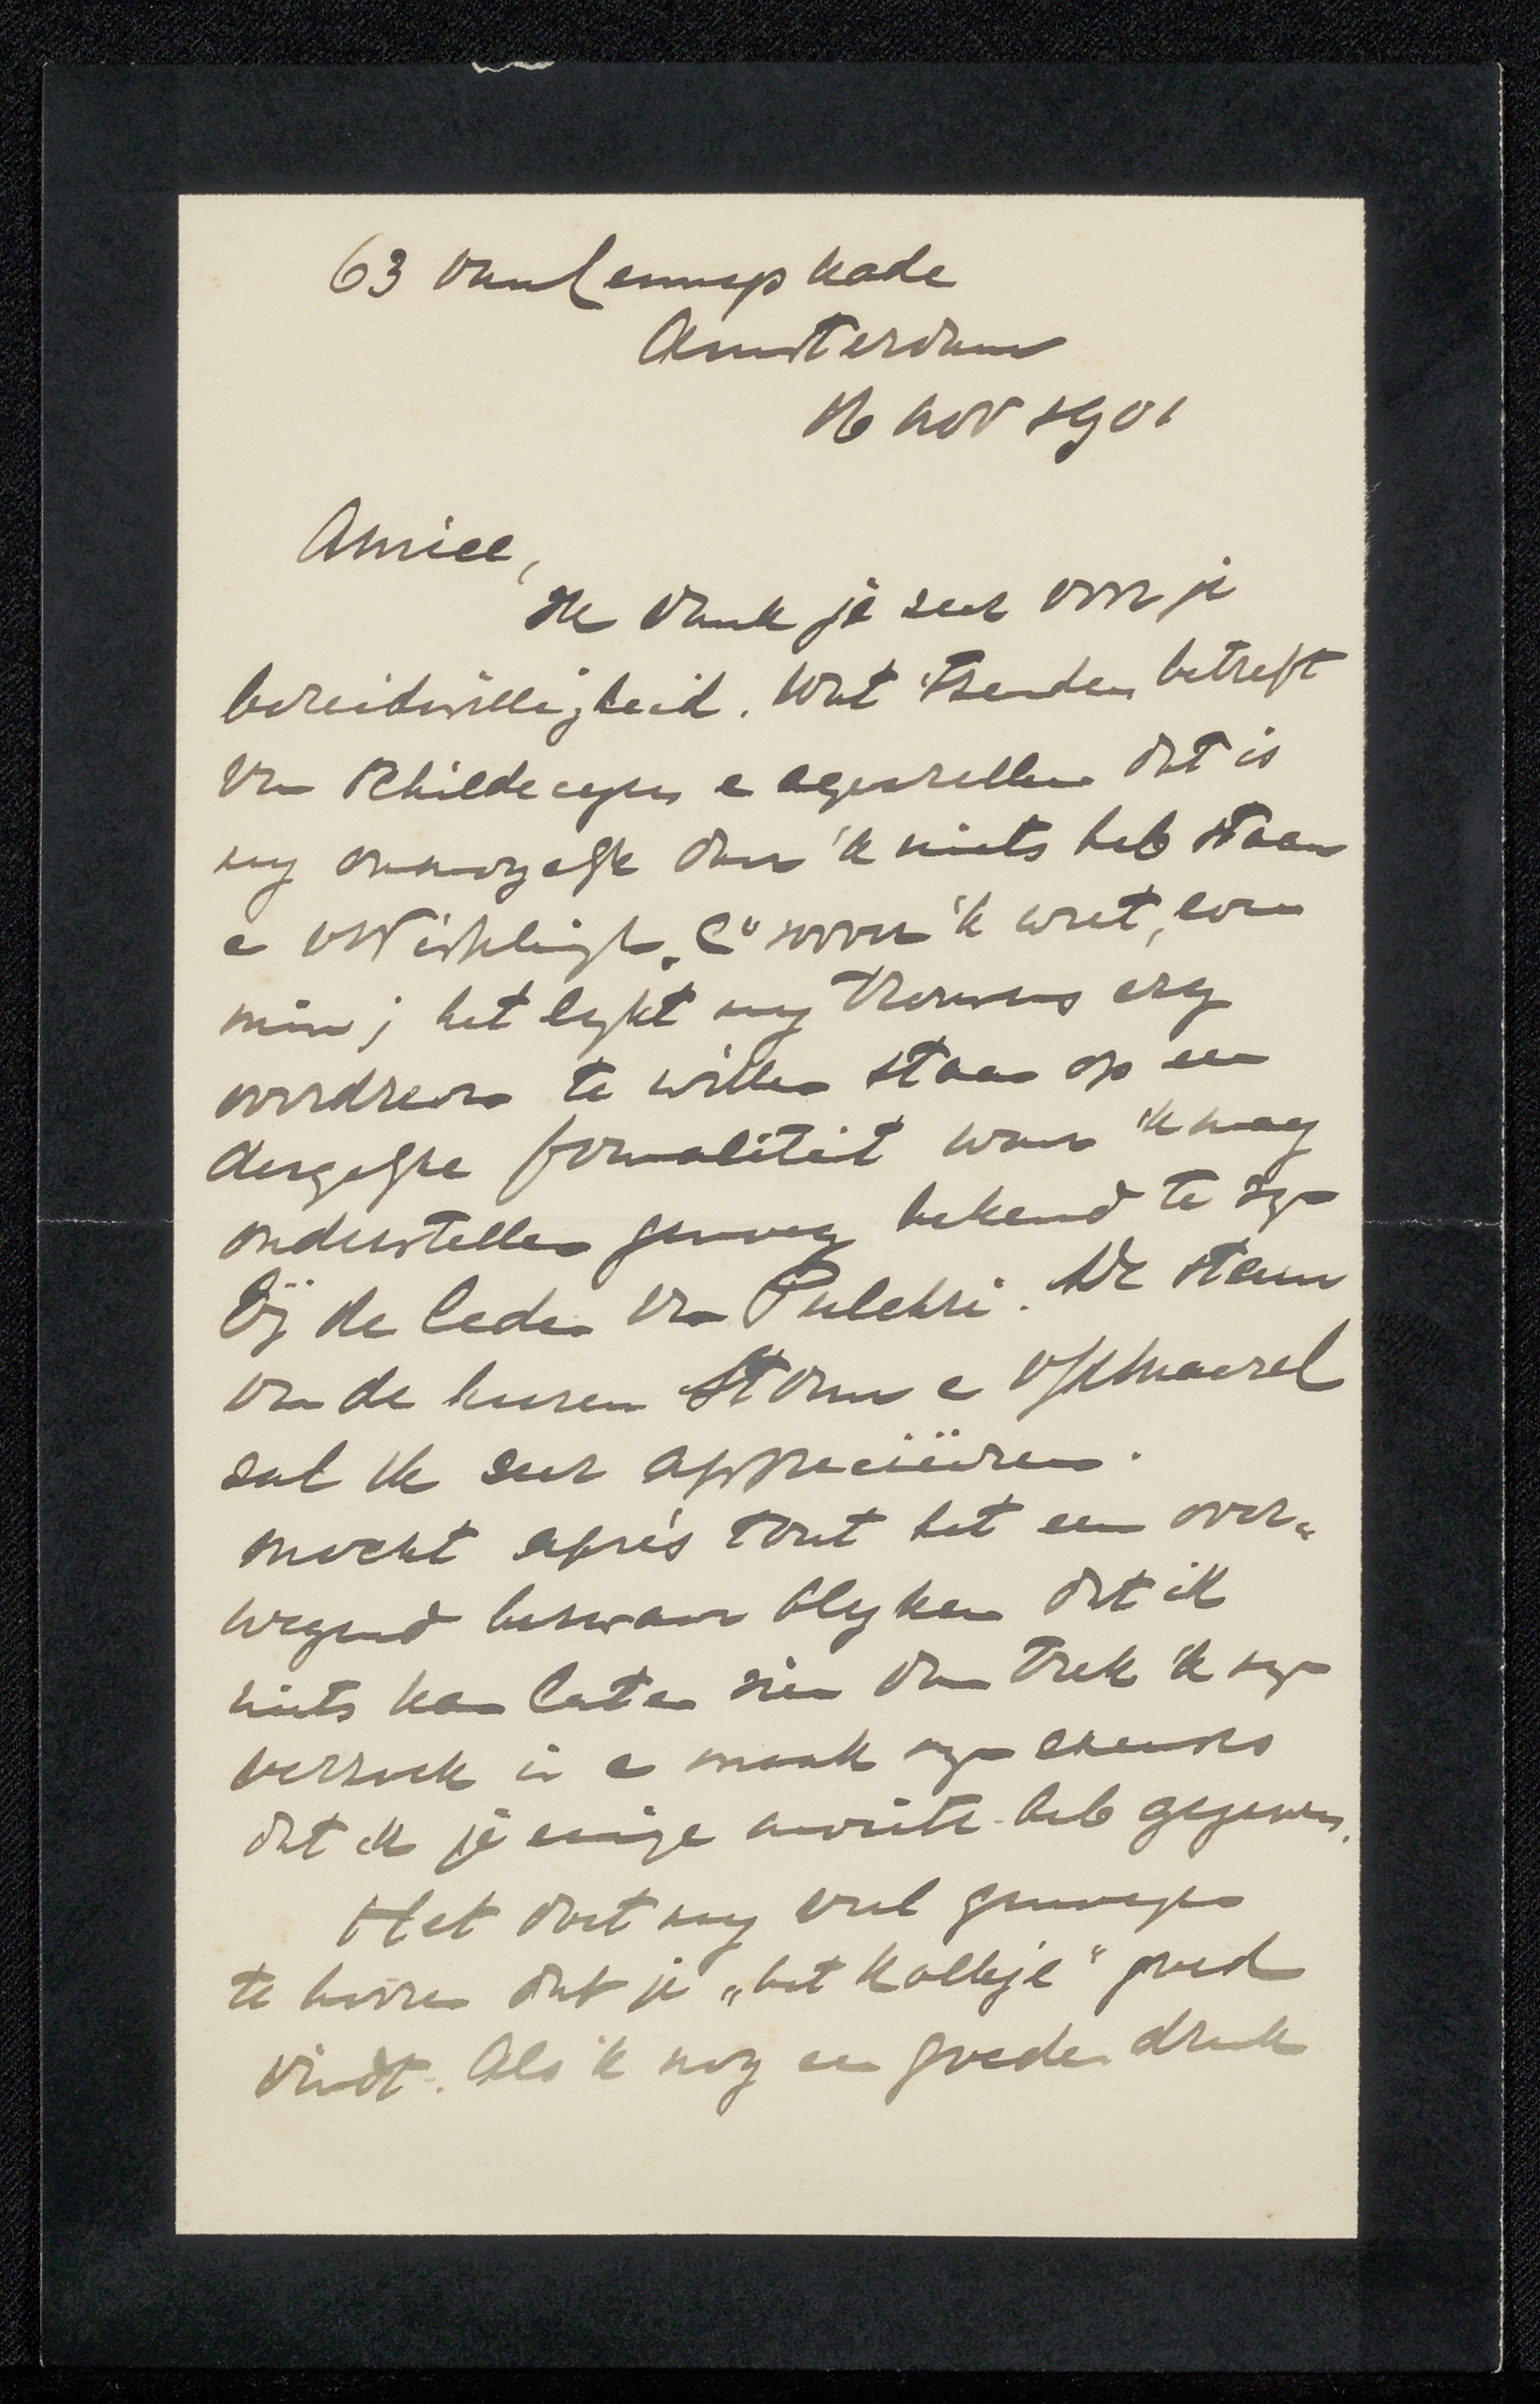 63 van Lennepkade
Amsterdam
16 nov 1901
Amice,
Ik dank je zeer voor je
bereidwilligheid. Wat 't zenden betreft
van schilderijen e aquarellen dat is
mij onmogelijk daar 'k niets heb staan
e v Wisselingh & Co voor zoover 'k weet, even
min; het lijkt mij trouwens erg
overdreven te willen staan op een
dergelijke formaliteit waar 'k mag
onderstellen genoeg bekend te zijn
bij de leden van Pulchri. De steun
van de heeren Storm e
zal ik zeer apprecieëren.
mocht après tout het een over„
wegend bezwaar blijken dat ik
niets kan laten zien dan trek 'k mijn
verzoek in e maak mijn excuses
dat ik je eenige moeite heb gegeven.
Het doet mij veel genoegen
te hooren dat je „het kolkje" goed
vindt. Als 'k nog een goeden druk